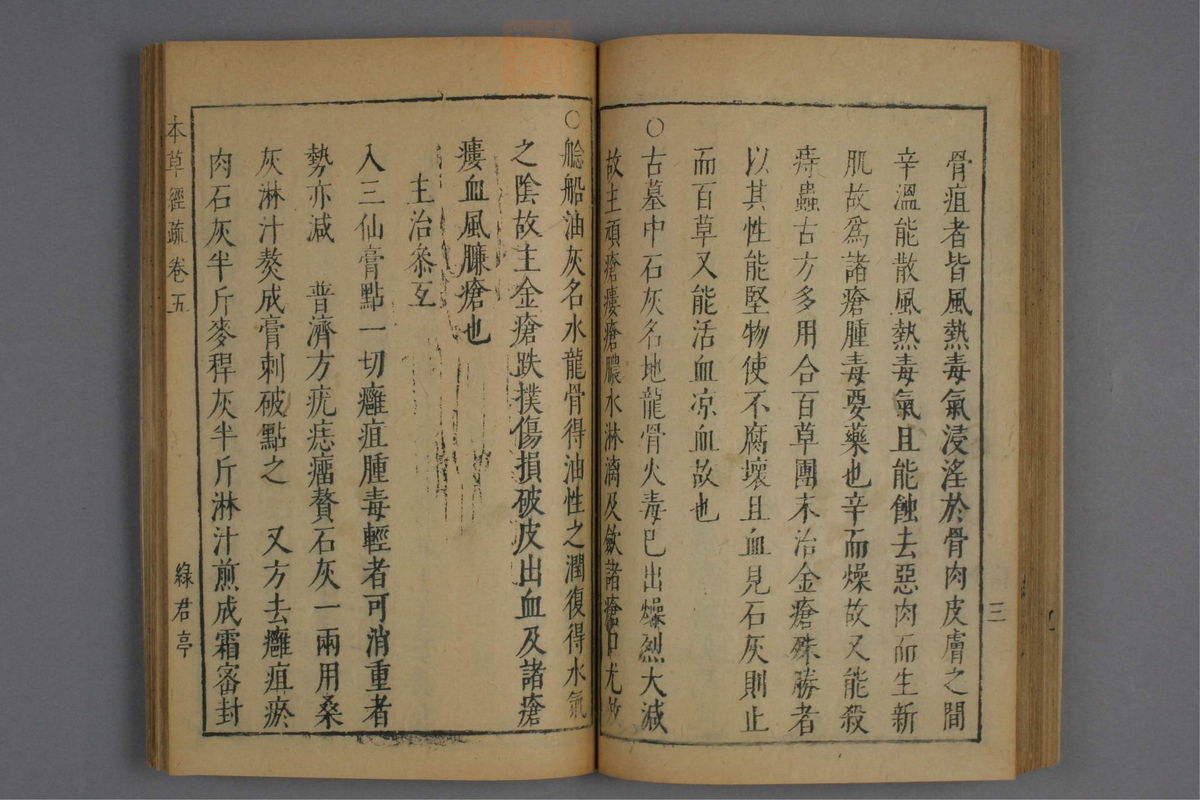 骨疽者皆風熱毒氣浸淫於骨肉皮膚之間
辛溫能散風熱毒氣且能蝕去惡肉而生新
肌故爲諸瘡腫毒要藥也辛而燥故又能殺
痔蟲古方多用合百草團末治金瘡殊勝者
以其性能堅物使不腐壞且血見石灰則止
而百草又能活血凉血故也
○古墓中石灰名地龍骨火毒已出燥烈大減
故主頑瘡瘻瘡膿水淋漓及斂諸瘡口尤
三
○艌船油灰名水龍骨得油性之潤復得水氣
之陰故主金瘡跌撲傷損破皮出血及諸瘡
瘻血風臁瘡也
主治叅互
入三仙膏點一切癰疽腫毒輕者可消重者
勢亦減 普濟方疣痣瘤贅石灰一兩用桑
灰淋汁熬成膏刺破點之 又方去癰疽瘀
肉石灰半斤麥稈灰半斤淋汁煎成霜密封
本草經疏卷五
綠君亭